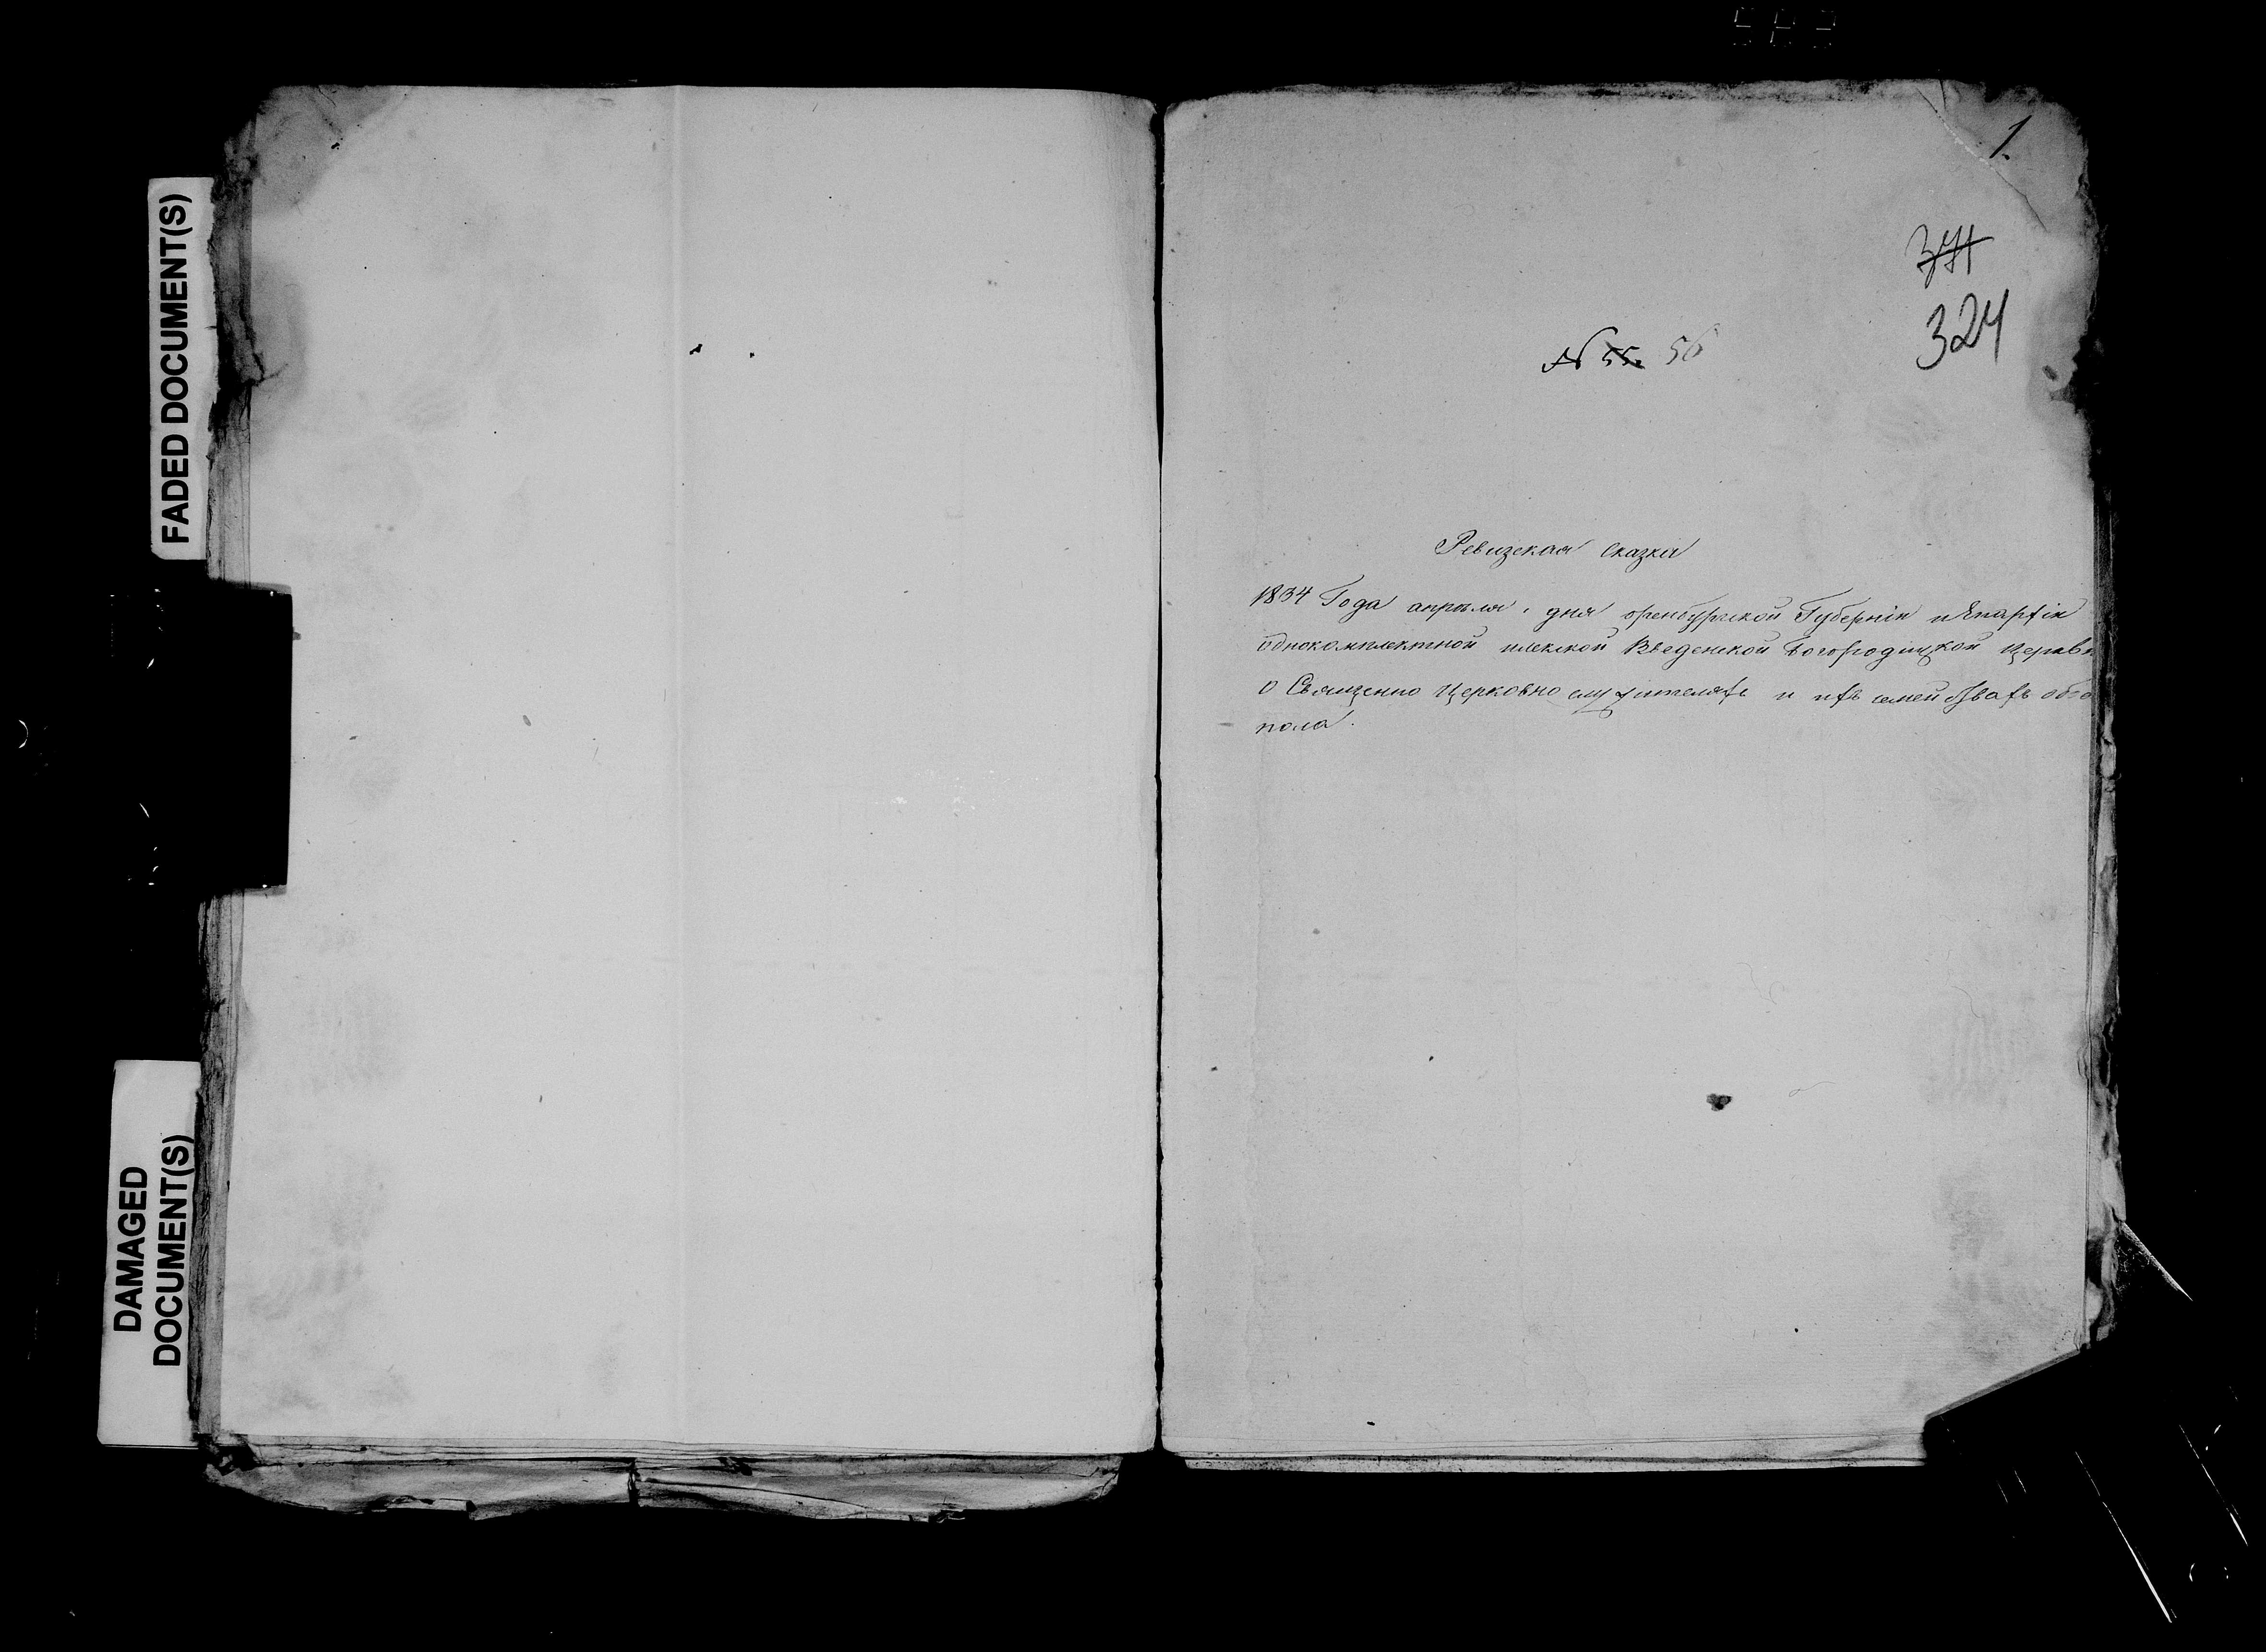 FADED DOCUMENT(S)
DAMAGED
DOCUMENT(S)
1.
324
N 55. 56
Ревизская сказка
1834 Года апреля, дня оренбургской Губернiи и Епархiи
однокомплектной илекской Введенской Богородицкой церкв
о Священно церковно служителяхъ и ихъ семействахъ обо
пола.